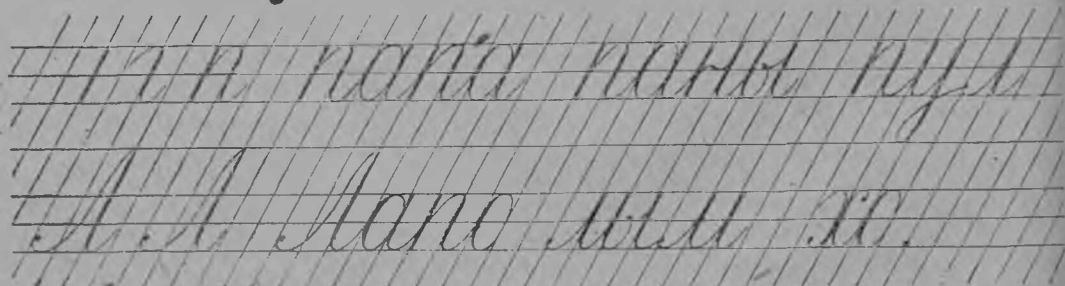 п п папа паны пул
Л Л Лапо лыл хо.